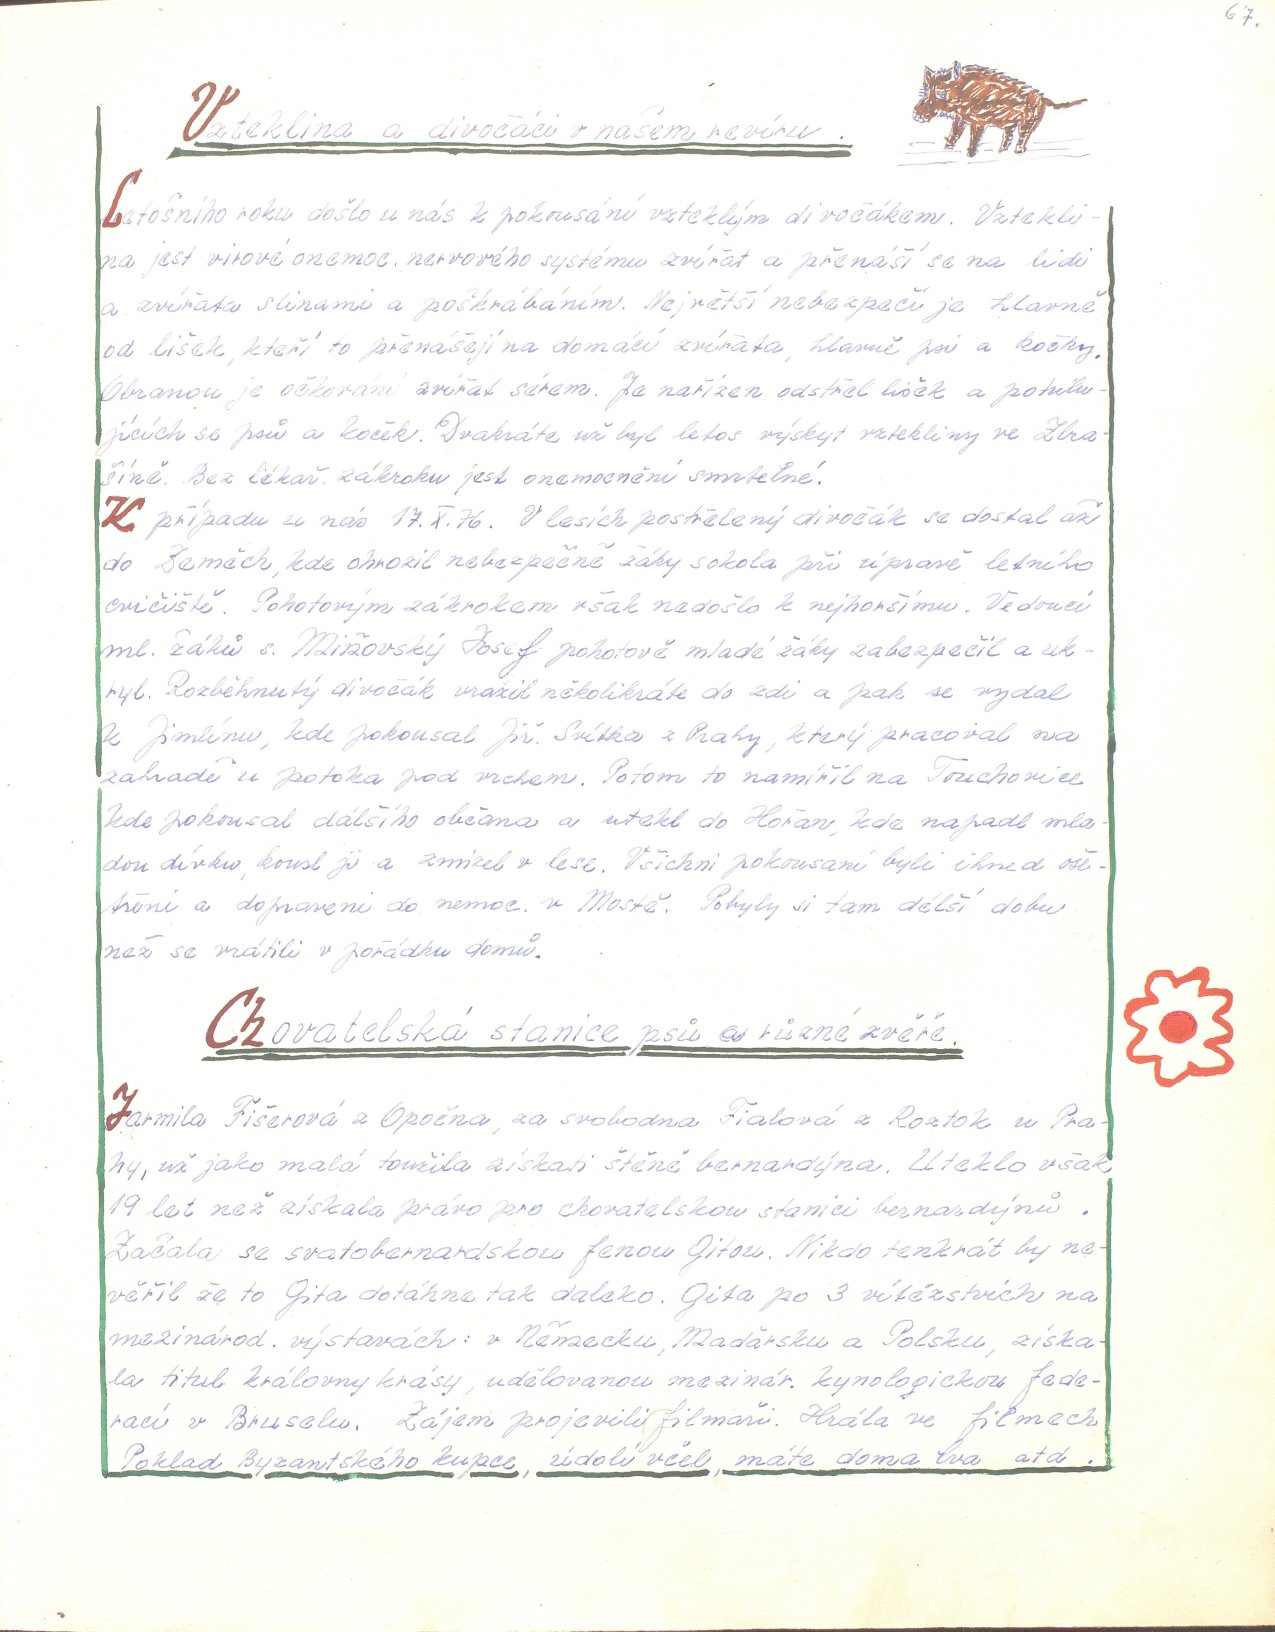 67.
Vzteklina a divočáci v našem revíru.
Letošního roku došlo u nás k pokousání vzteklým divočákem. Vztekli-
na jest virové onemoc. nervového systému zvířat a přenáší se na lidi
a zvířata slinami a poškrábáním. Největší nebezpečí je hlavně
od lišek, kteří to přenášejí na domácí zvířata, hlavně psi a kočky.
Obranou je očkovaní zvířat sérem. Je nařízen odstřel lišek a potulu-
jících se psů a koček. Dvakráte už byl letos výskyt vztekliny ve Zbra-
šíně. Bez lékař. zákroku jest onemocnění smrtelné.
K případu u nás 17.X.76. V lesích postřelený divočák se dostal až
do Zeměch, kde ohrozil nebezpečně žáky sokola při úpravě letního
cvičiště. Pohotovým zákrokem však nedošlo k nejhoršímu. Vedoucí
ml. žáků s. Mižovský Josef pohotově mladé žáky zabezpečil a uk-
ryl. Rozběhnutý divočák vrazil několikráte do zdi a pak se vydal
k Jimlínu, kde pokousal Jiř. Svítka z Prahy, který pracoval na
zahradě u potoka pod vrchem. Potom to namířil na Touchovice
kde pokousal dálšího občana a utekl do Hořan, kde napadl mla-
dou dívku, kousl ji a zmizel v lese. Všichni pokousaní byli ihned oše-
třeni a dopraveni do nemoc. v Mostě. Pobyly si tam délší dobu
než se vrátili v pořádku domů.
Chovatelská stanice psů a různé zvěře.
Jarmila Fišerová z Opočna, za svobodna Fialová z Roztok u Pra-
hy, už jako malá toužila získati štěně bernardýna. Uteklo však
19 let než získala právo pro chovatelskou stanici bernardýnů.
Začala se svatobernardskou fenou Gitou. Nikdo tenkrát by ne-
věřil že to Gita dotáhne tak daleko. Gita po 3 vítězstvích na
mezinárod. výstavách: v Německu, Maďarsku a Polsku, získa-
la titul královny krásy, udělovanou mezinár. kynologickou fede-
rací v Bruselu. Zájem projevili filmaři. Hrála ve filmech
Poklad Byzantského kupce, údolí včel, máte doma lva atd.